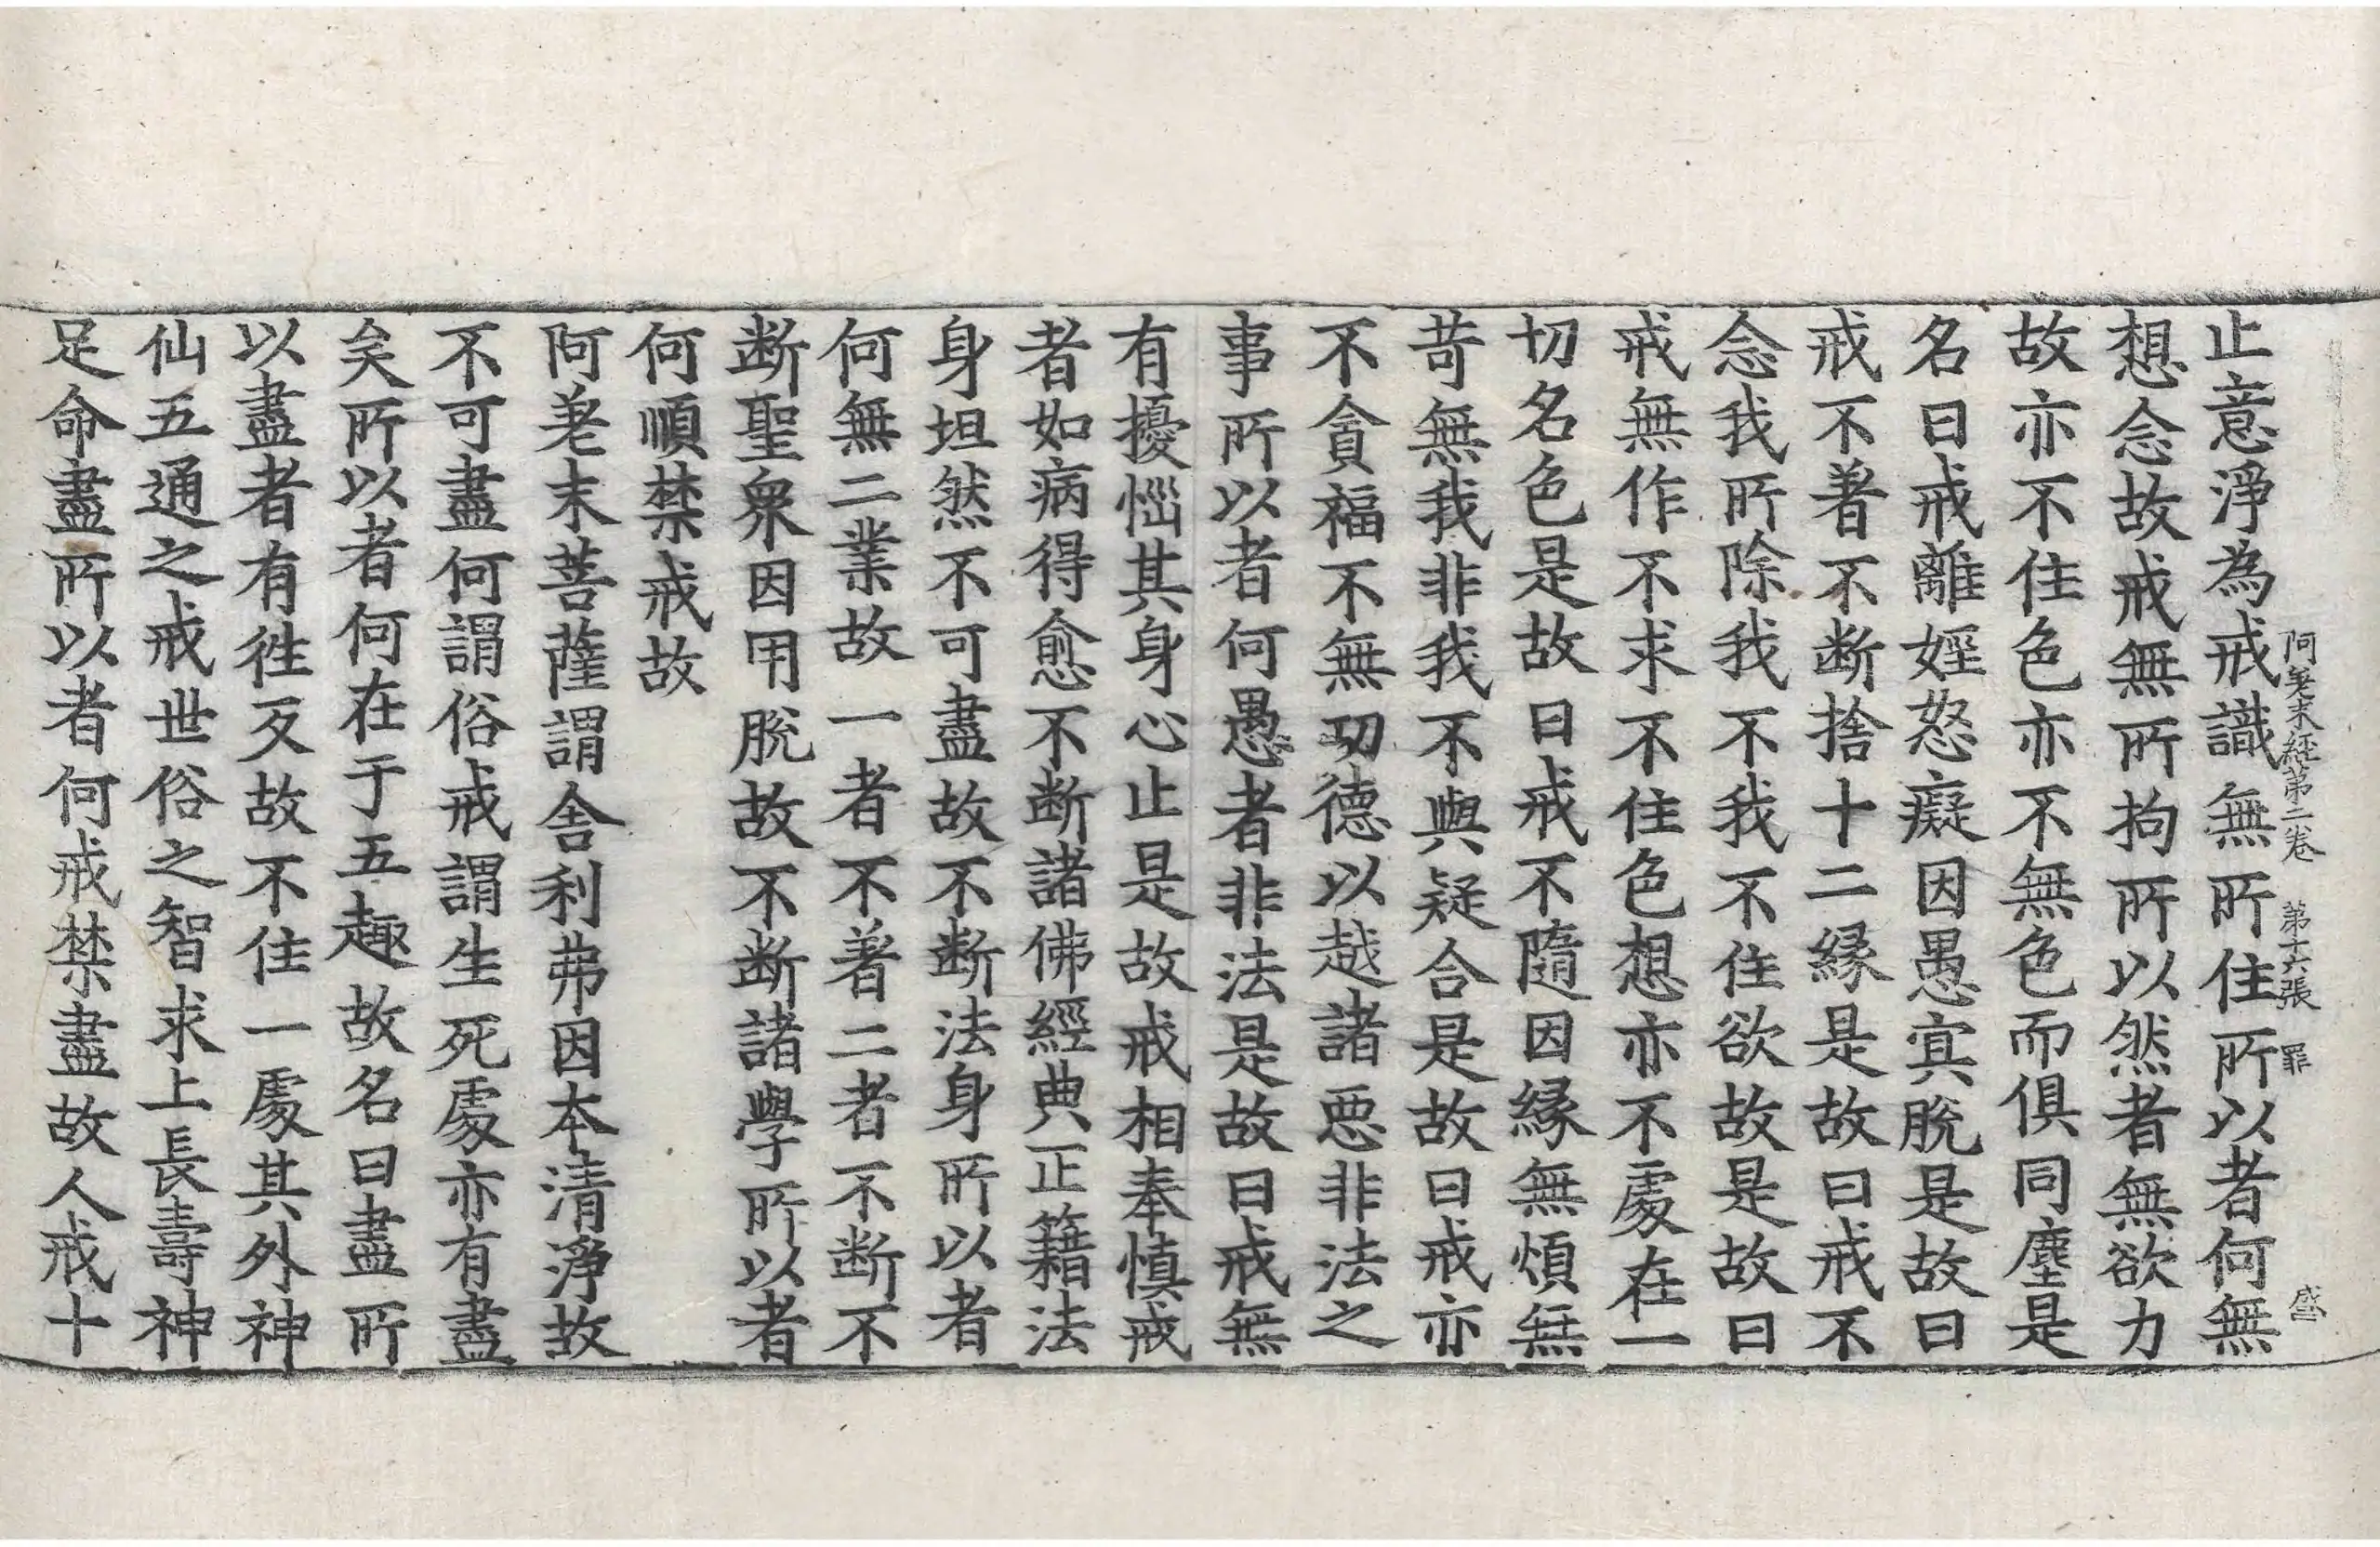 阿差末經第二卷　第十六張　罪　盛
止意淨為戒識無所住所以者何無
想念故戒無所拘所以然者無欲力
故亦不住色亦不無色而俱同塵是
名曰戒離婬怒癡因愚冥脫是故曰
戒不著不断捨十二緣是故曰戒不
念我所除我不我不住欲故是故曰
戒無作不求不住色想亦不處在一
切名色是故曰戒不隨因緣無煩無
苛無我非我不與疑合是故曰戒亦
不貪福不無功德以越諸惡非法之
事所以者何愚者非法是故曰戒無
有擾惱其身心止是故戒相奉慎戒
者如病得愈不断諸佛經典正籍法
身坦然不可盡故不断法身所以者
何無二業故一者不著二者不断不
断聖衆因用脫故不断諸學所以者
何順禁戒故
阿差末菩薩謂舍利弗因本清淨故
不可盡何謂俗戒謂生死處亦有盡
矣所以者何在于五趣故名曰盡所
以盡者有往反故不住一處其外神
仙五通之戒世俗之智求上長壽神
足命盡所以者何戒禁盡故人戒十